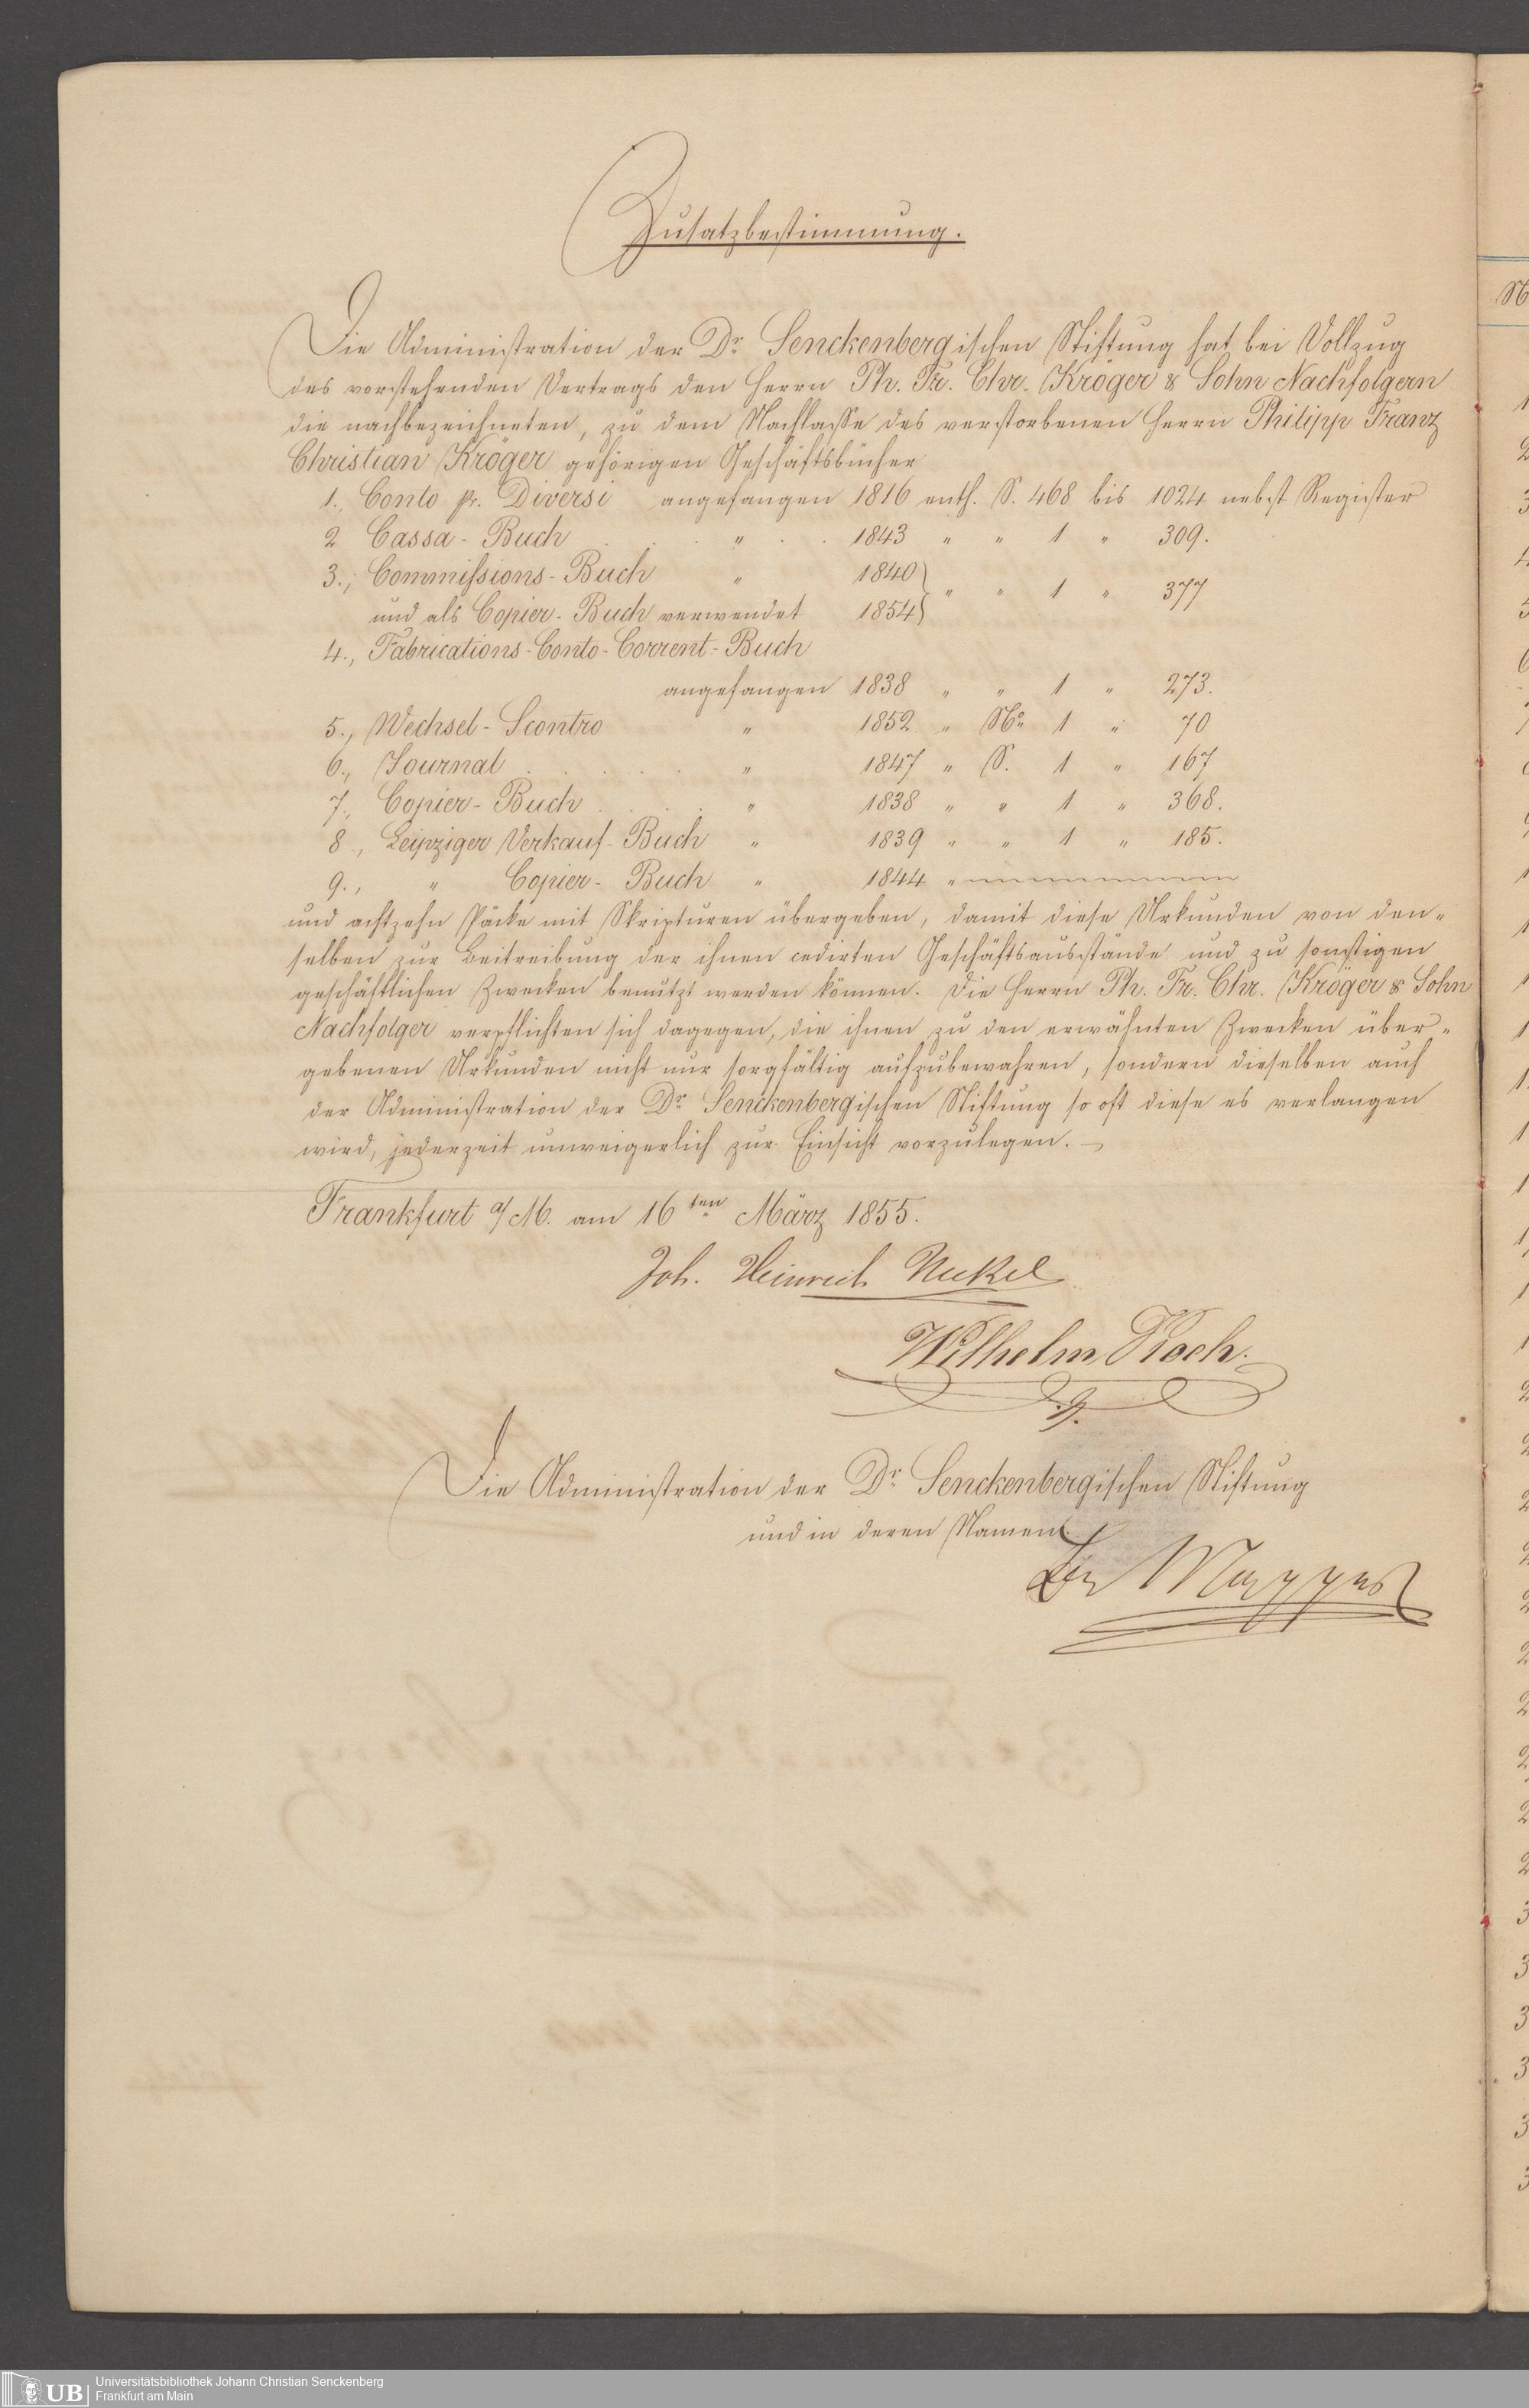 Zusatzbestimmung.
Die Administration der Dr. Senckenbergischen Stiftung hat bei Vollzug
des vorstehenden Vertrags den Herrn Ph. Fr. Chr. Kröger & Sohn Nachfolgern
die nachbezeichneten, zu dem Nachlasse des verstorbenen Herrn Philipp Franz
Christian Kröger gehörigen Geschäftsbücher
1., Conto pr. Diversi angefangen 1816 enth. S. 468 bis 1024 nebst Register
2 Cassa-Buch . . . " . . 1843 " " 1 " 309.
3., Commissions-Buch " 1840 } " " 1 " 377
und als Copier-Buch verwendet 1854 }
4., Fabrications-Conto-Corrent-Buch
angefangen 1838 " " 1 " 273.
5., Wechsel-Scontro " 1852 " No. 1 " 70
6., Journal . . . . . " 1847 " S. 1 " 167
7., Copier-Buch . . . . " 1838 " " 1 " 368.
8., Leipziger Verkauf-Buch " 1839 " " 1 " 185.
9., " Copier-Buch " 1844 "
und achtzehn Päcke mit Skripturen übergeben, damit diese Urkunden von den-
selben zur Beitreibung der ihnen cedirten Geschäftsausstände und zu sonstigen
geschäftlichen Zwecken benutzt werden können. Die Herrn Ph. Fr. Chr. Kröger & Sohn
Nachfolger verpflichten sich dagegen, die ihnen zu den erwähnten Zwecken über-
gebenen Urkunden nicht nur sorgfältig aufzubewahren, sondern dieselben auch
der Administration der Dr. Senckenbergischen Stiftung so oft diese es verlangen
wird, jederzeit unweigerlich zur Einsicht vorzulegen. —
Frankfurt a/M. am 16ten März 1855.
Joh. Heinrich Nickel
Wilhelm Koch.
Die Administration der Dr. Senckenbergischen Stiftung
und in deren Namen
Dr
UB
Universitätsbibliothek Johann Christian Senckenberg
Frankfurt am Main